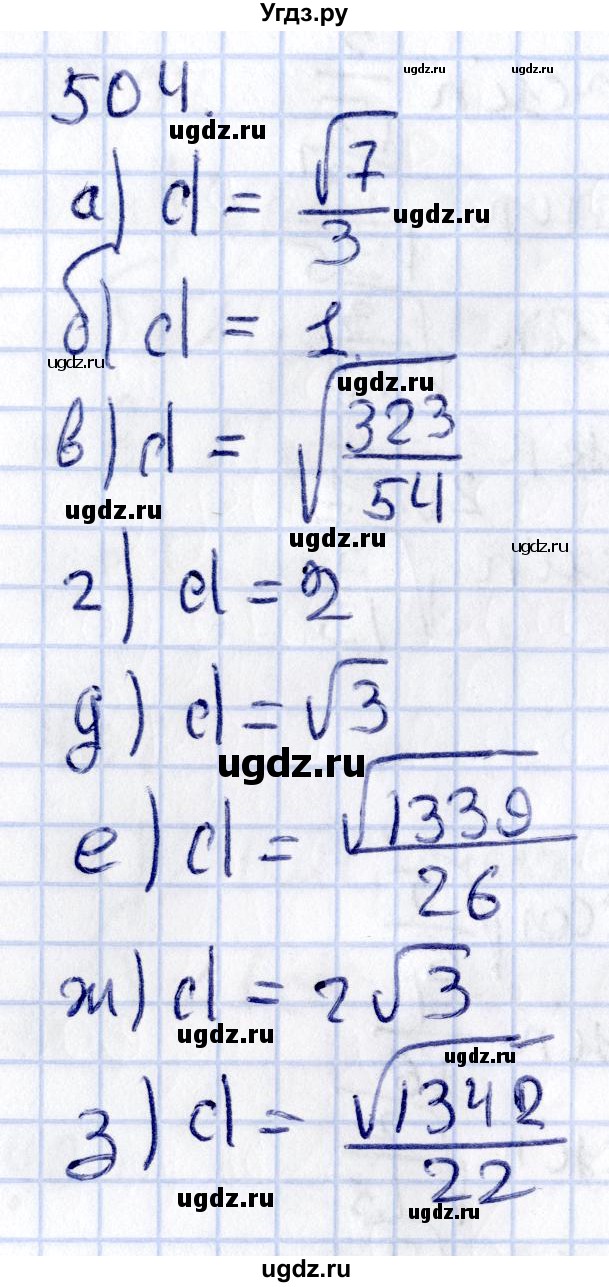 Угдз.ру
504.
ugdz.ru ugdz.ru
ugdz.ru
а) d = √7/3
ugdz.ru
б) d = 1.
ugdz.ru
ugdz.ru
в) d = √(323/54)
ugdz.ru
ugdz.ru
ugdz.ru
г) d = 2
д) d = √3
ugdz.ru
е) d = √1339/26
ж) d = 2√3
ugdz.ru
ugdz.ru
з) d = √1342/22
ugdz.ru
ugdz.ru
ugdz.ru